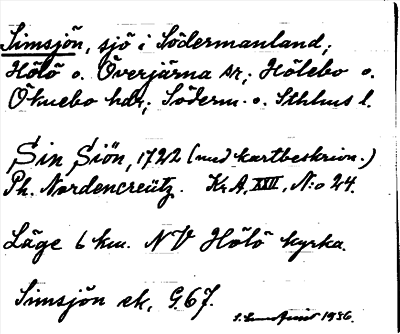 Simsjön, sjö i Södermanland,
Hölö o. Överjärna sr, Hölebo o.
Öknebo hdr, Söderm. o. Sthlms l.
Sin Siön, 1722 (med kartbeskrivn.)
Ph. Nordencreütz. Kr.A, XXII, N:o 24.
Läge 6 km. NV Hölö kyrka.
Simsjön ek, G.67.
1936.